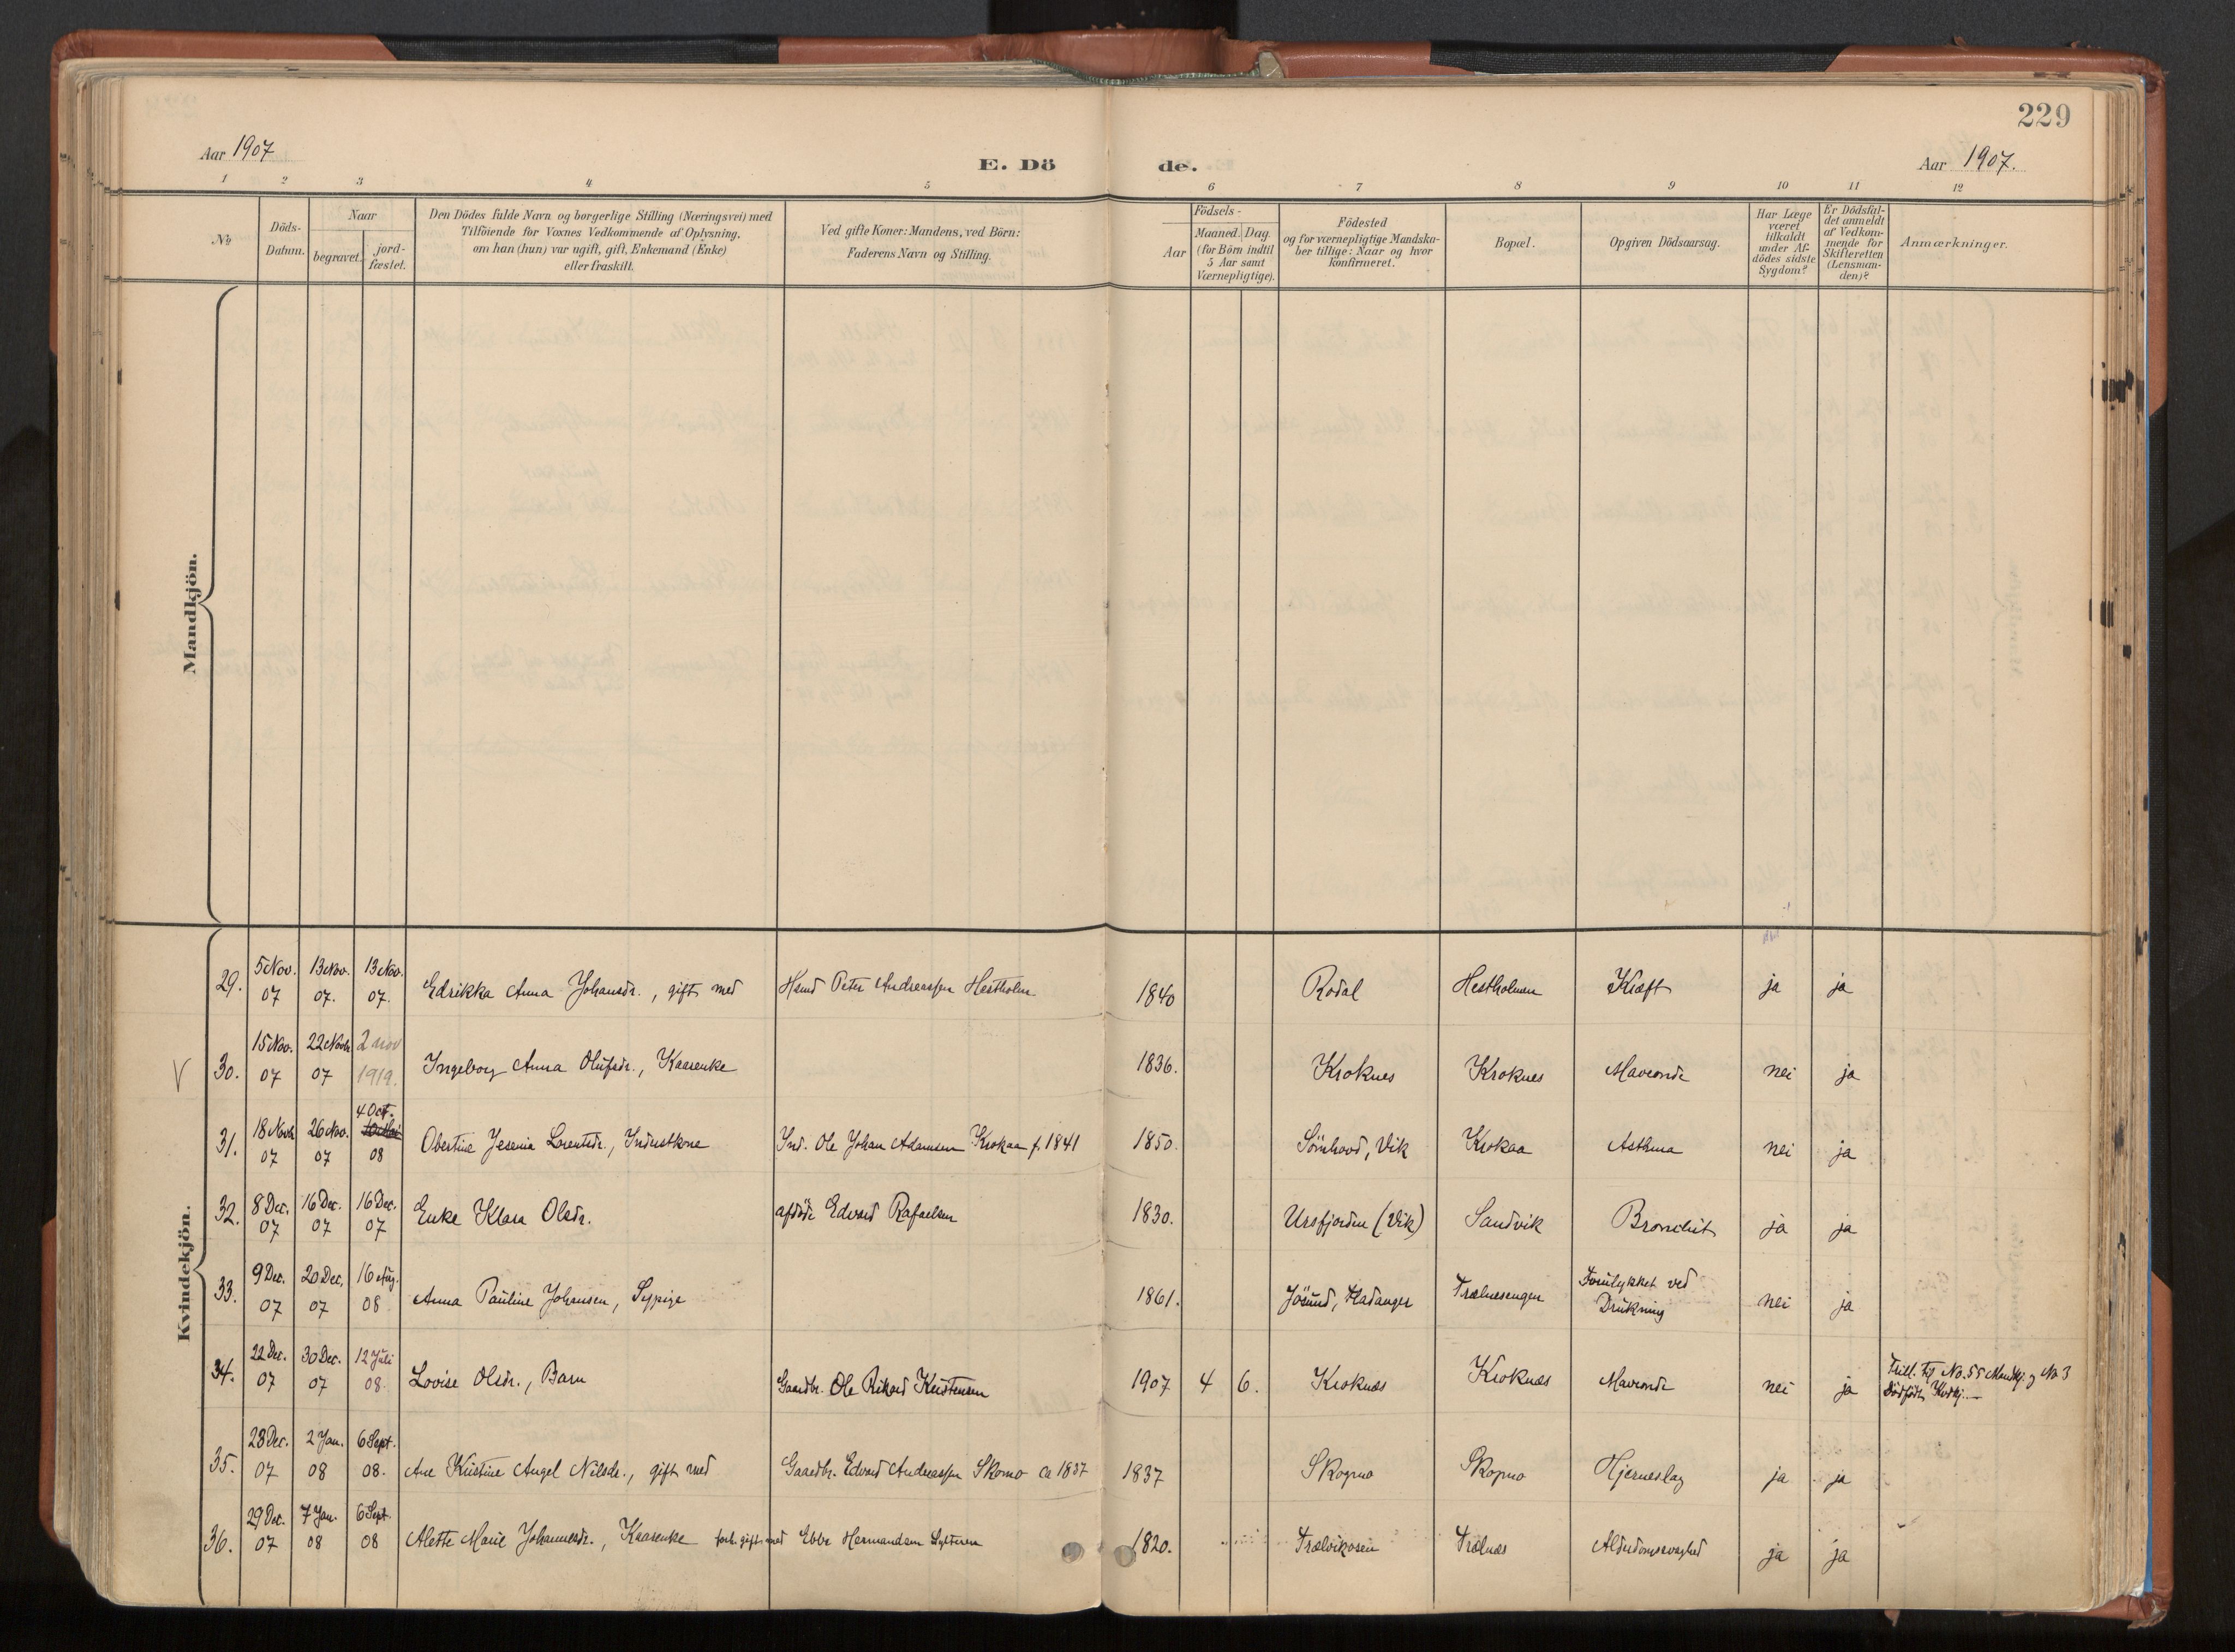 229
Aar 1907
E. Dö de.
Aar 1907.
1 2 3 4 5 6 7 8 9 10 11 12
No
Döds-Datum.
Naar
begravet.
jord-fæstet.
Den Dödes fulde Navn og borgerlige Stilling (Næringsvei) med
Tilföiende for Voxnes Vedkommende af Oplysning,
om han (hun) var ugift, gift, Enkemand (Enke)
eller fraskilt.
Ved gifte Koner: Mandens, ved Börn:
Faderens Navn og Stilling.
Födsels-
Aar
Maaned. Dag.
(for Börn indtil
5 Aar samt
Værnepligtige).
Födested
og for værnepligtige Mandska-
ber tillige: Naar og hvor
konfirmeret.
Bopæl.
Opgiven Dödsaarsag.
Har Læge
været
tilkaldt
under Af-
dödes sidste
Sygdom?
Er Dödsfal-
det anmeldt
af Vedkom-
mende for
Skifteretten
(Lensman-
den)?
Anmærkninger.
Mandkjön.
Kvindekjön.
29. 5 Nov. 07 13 Nov. 07. 13 Nov. 07. Edrikka Anna Johansdr., gift med Hmd Peter Andreassen Hestholm 1840 Rodal Hestholmen Kræft ja ja
V 30. 15 Nov. 07 22 Novb. 07 2 nov 1919. Ingeborg Anna Olufsdr., Kaarenke 1836. Kroknes Kroknes Maveonde nei ja
31. 18 Novb. 07 26 Nov. 07 4 Oct. 08 Obertine Jesenia Lorentsdr., Inderstkone Ind. Ole Johan Adamsen Krokaa f. 1841 1850. Sömhovd, Vik Krokaa Asthma nei ja
32. 8 Dec. 07 16 Dec. 07 16 Dec. 07 Enke Klara Olsdr. afdöde Edvard Rafaelsen 1830. Ursfjorden (Vik) Sandvik Bronchit ja ja
33. 9 Dec. 07 20 Dec. 07 16 Aug. 08 Anna Pauline Johansen, Sypige 1861. Jösund, Hadanger Trælnesengen Forulykket ved
Drukning nei ja
34. 22 Dec. 07 30 Dec. 07 12 Juli 08. Lovise Olsdr., Barn Gaardbr. Ole Rikard Kristensen 1907 4 6. Kroknæs Kroknæs Maveonde nei ja Trill. Fj No. 55 Mandkj. og No 3
Dödfödt Kvdkj.
35. 28 Dec. 07 2 Jan. 08 6 Sept. 08. Ane Kristine Angel Nilsdr., gift med Gaardbr. Edvard Andreassen Skomo ca 1837 1837 Skogmo Skogmo Hjerneslag ja ja
36. 29 Dec. 07 7 Jan. 08 6 Sept. 08 Alette Marie Johannesdr., Kaarenke forh. gift med Ebbe Hermandsen Sylteren 1820. Trælvikosen Trælnæs Alderdomssvaghed ja ja